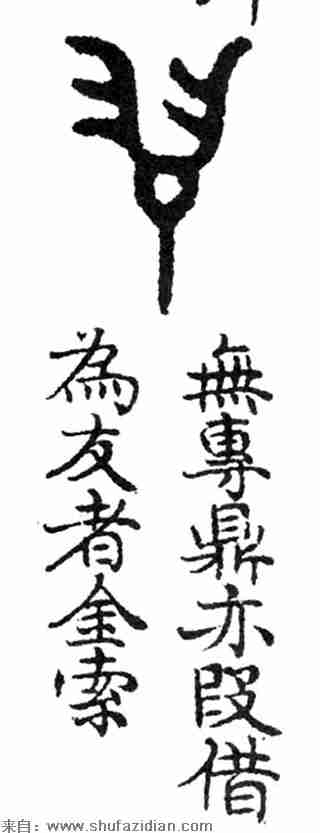 無專鼎亦叚借
為友者金索
来自：www.shufazidian.com